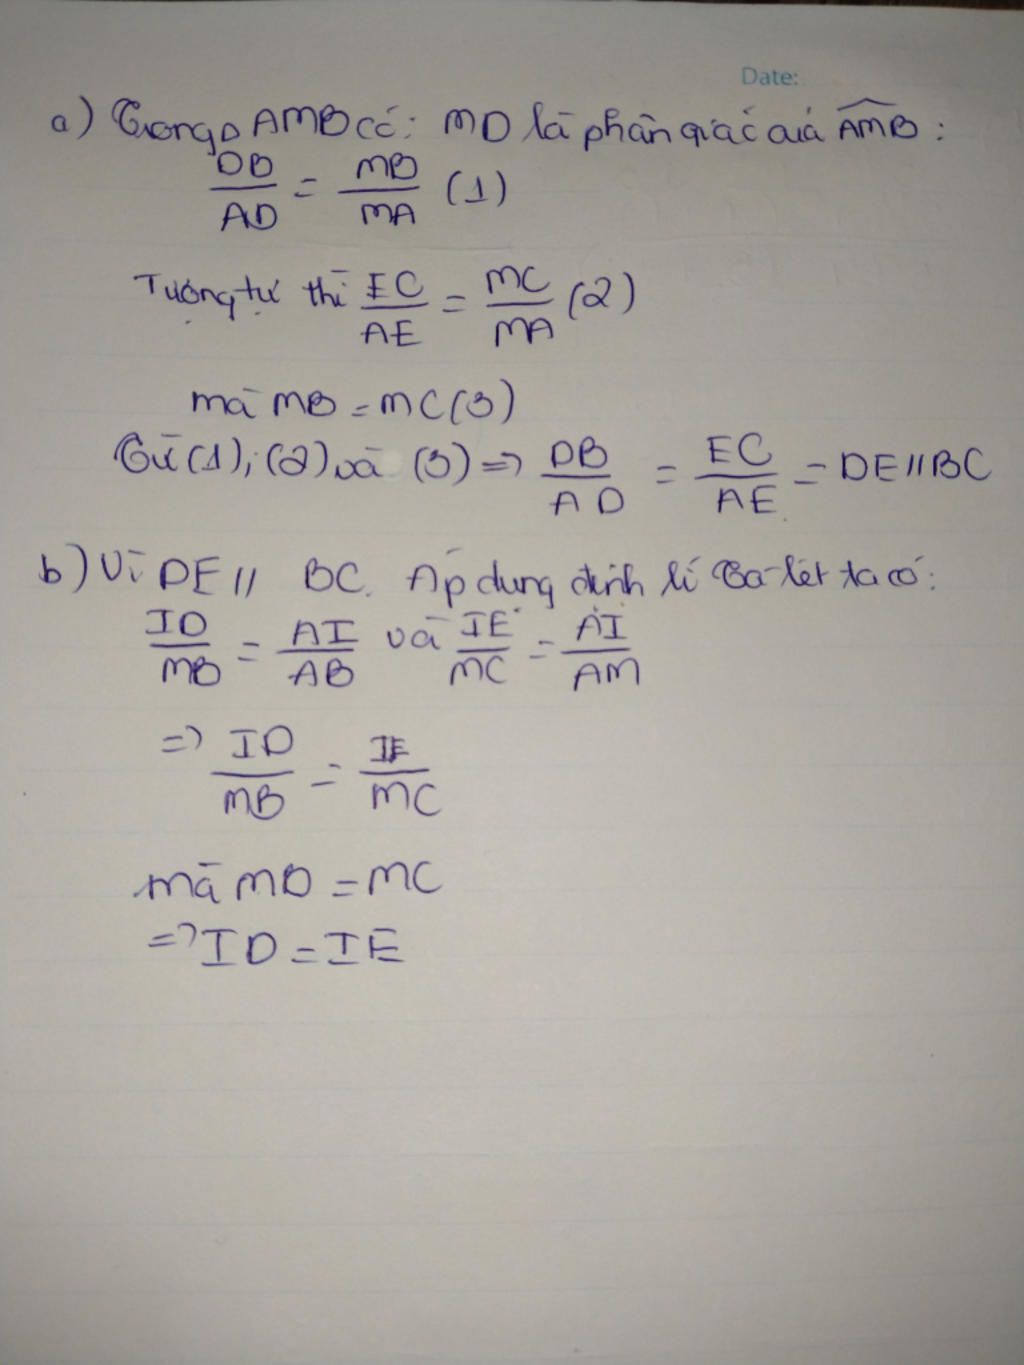 Date:
a) Trong △ AMB có: MD là phân giác của AMB:
DB/AD = MB/MA (1)
Tương tự thì EC/AE = MC/MA (2)
mà MB = MC (3)
Từ (1); (2) và (3) => DB/AD = EC/AE = DE // BC
b) Vì DE // BC. Áp dụng định lí Ba-lét ta có:
ID/MB = AI/AB và IE/MC = AI/AM
=> ID/MB = IE/MC
mà MD = MC
=> ID = IE